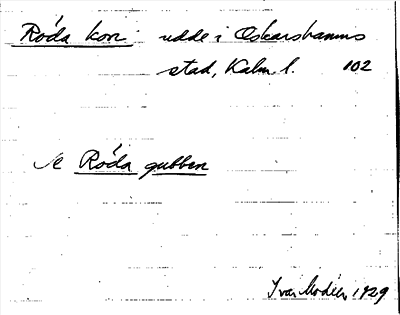 Röda kon udde i Oskarshamns
stad, Kalm. l. 102
se Röda gubben
Ivar Modéer, 1929